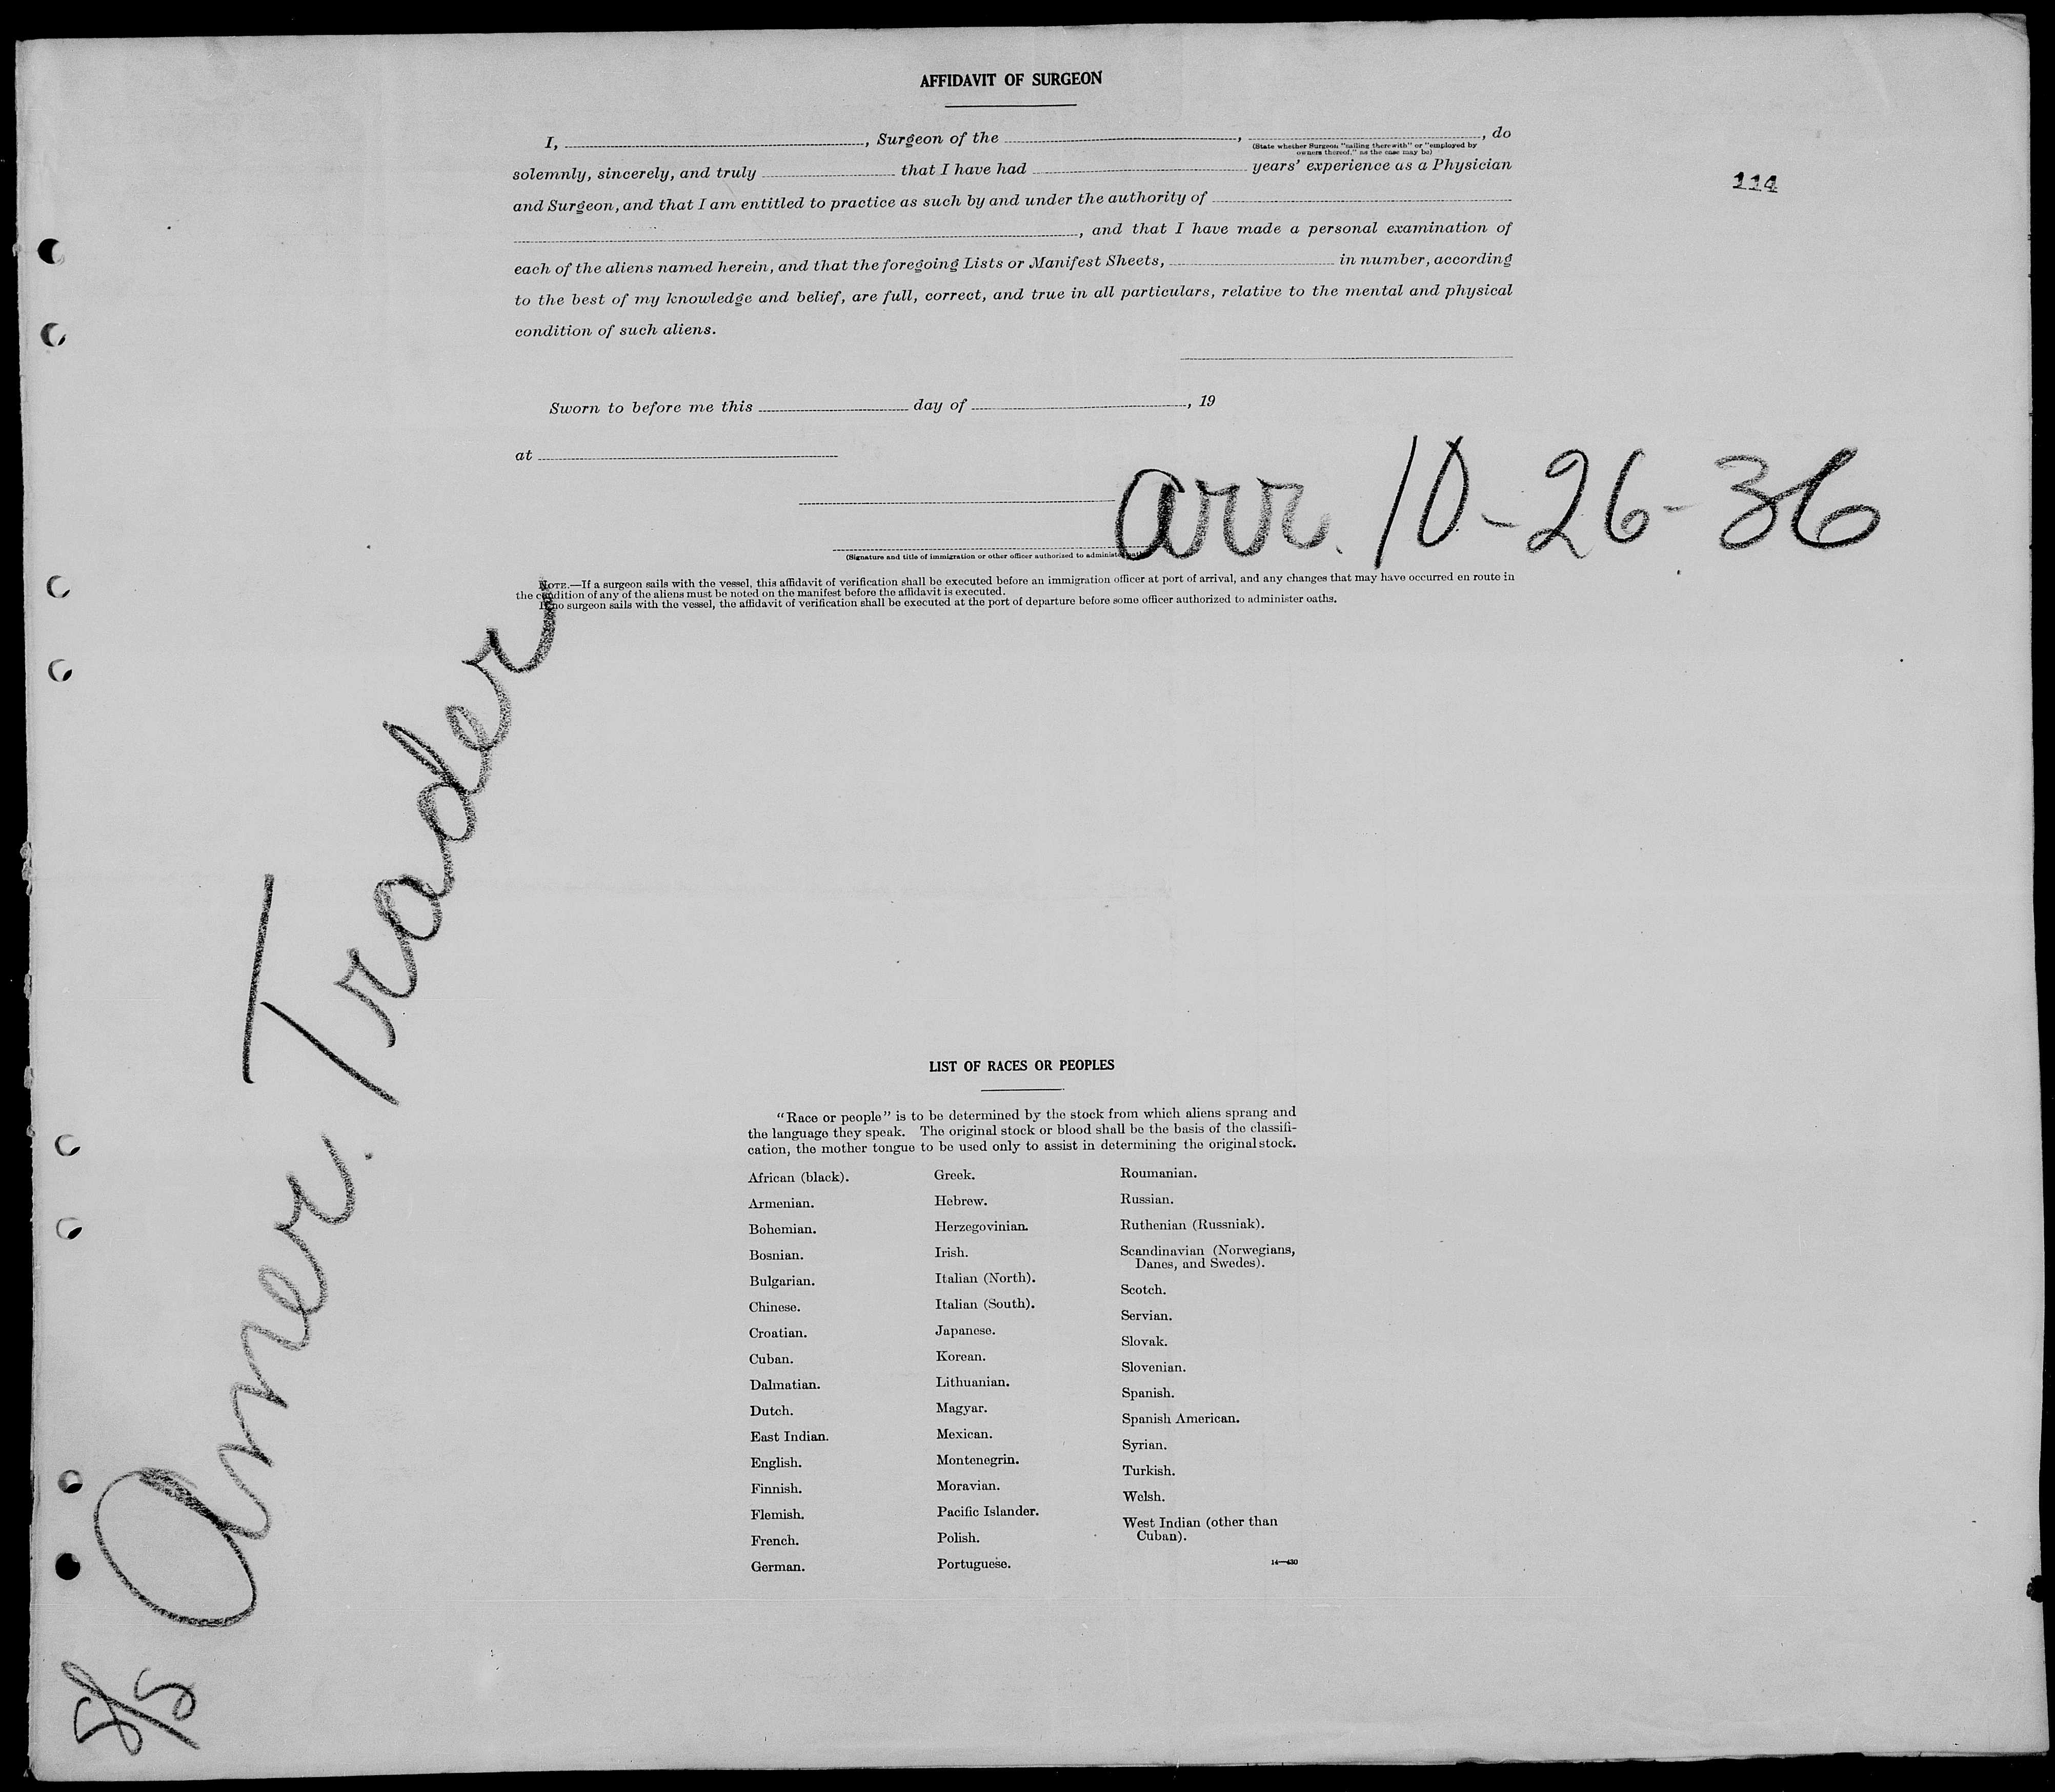 AFFIDAVIT OF SURGEON
I, , Surgeon of the , , do
(State whether Surgeon "sailing therewith" or "employed by
owners thereof," as the case may be)
solemnly, sincerely, and truly that I have had years' experience as a Physician
114
and Surgeon, and that I am entitled to practice as such by and under the authority of
, and that I have made a personal examination of
each of the aliens named herein, and that the foregoing Lists or Manifest Sheets, in number, according
to the best of my knowledge and belief, are full, correct, and true in all particulars, relative to the mental and physical
condition of such aliens.
Sworn to before me this day of , 19
at
arr. 10-26-36
(Signature and title of immigration or other officer authorized to administer
NOTE.—If a surgeon sails with the vessel, this affidavit of verification shall be executed before an immigration officer at port of arrival, and any changes that may have occurred en route in
the condition of any of the aliens must be noted on the manifest before the affidavit is executed.
If no surgeon sails with the vessel, the affidavit of verification shall be executed at the port of departure before some officer authorized to administer oaths.
S/S Amer. Trader
LIST OF RACES OR PEOPLES
"Race or people" is to be determined by the stock from which aliens sprang and
the language they speak. The original stock or blood shall be the basis of the classifi-
cation, the mother tongue to be used only to assist in determining the original stock.
African (black).
Armenian.
Bohemian.
Bosnian.
Bulgarian.
Chinese.
Croatian.
Cuban.
Dalmatian.
Dutch.
East Indian.
English.
Finnish.
Flemish.
French.
German.
Greek.
Hebrew.
Herzegovinian.
Irish.
Italian (North).
Italian (South).
Japanese.
Korean.
Lithuanian.
Magyar.
Mexican.
Montenegrin.
Moravian.
Pacific Islander.
Polish.
Portuguese.
Roumanian.
Russian.
Ruthenian (Russniak).
Scandinavian (Norwegians,
Danes, and Swedes).
Scotch.
Servian.
Slovak.
Slovenian.
Spanish.
Spanish American.
Syrian.
Turkish.
Welsh.
West Indian (other than
Cuban).
14—430